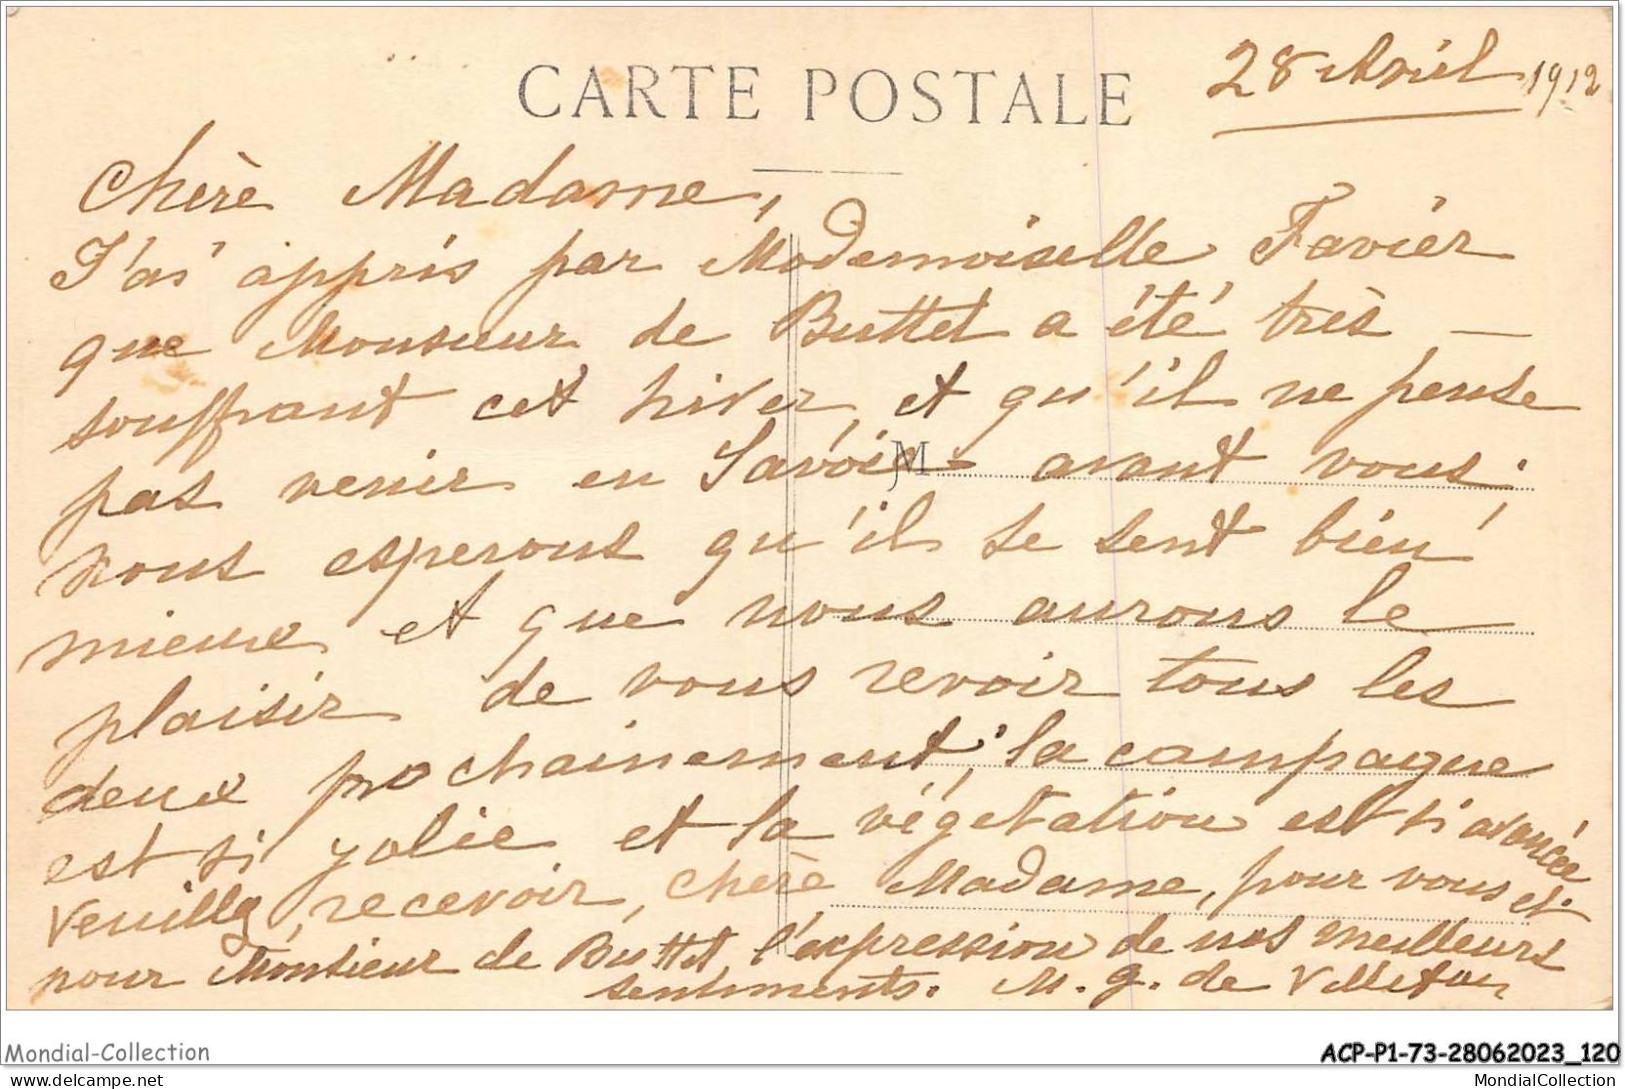 28 Avril 1912
CARTE POSTALE
Chère Madame,
J'ai appris par Mademoiselle Favier
que Monsieur de Buttet a été très —
souffrant cet hiver, et qu'il ne pense
pas venir en Savoie avant vous;
M
nous esperons qu'il se sent bien
mieux et que nous aurons le
plaisir de vous revoir tous les
deux prochainement; la campagne
est si jolie et la végétation est si avancée
Veuillez, recevoir, chère Madame, pour vous et
pour Monsieur de Buttet l'expression de nos meilleurs
sentiments. M. g. de
Mondial-Collection
ACP-P1-73-28062023_120
delcampe.net
MondialCollection